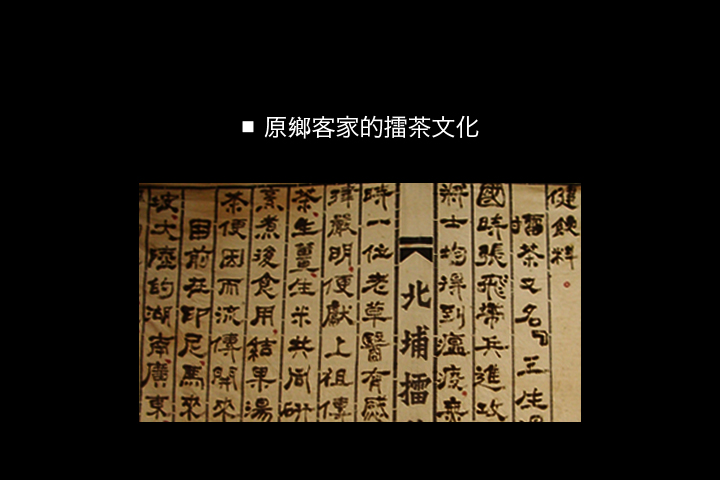 原鄉客家的擂茶文化
健飲料
擂茶又名『三生
國時張飛帶兵進攻
將士均得到瘟疫無
北埔擂
時一位老草醫有感
律嚴明便獻上祖傳
茶生薑生米共同研
烹煮後食用結果湯
茶便因而流傳開來
目前在印尼馬來
坡大陸的湖南廣東